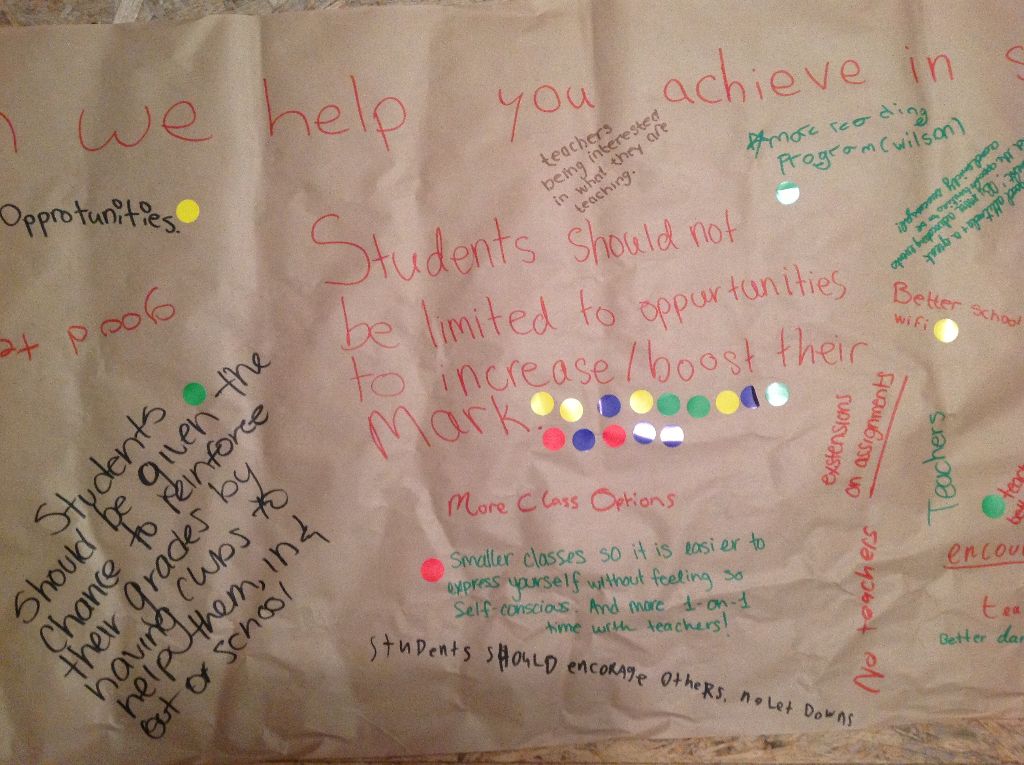 we help you achieve in s
Opprotunities.
teachers
being interested
in what they are
teaching.
*more reading
program (wilson)
Students should not
be limited to oppurtunities
to increase/boost their
Mark.
Better school
wifi
good
Students
Should be given the
Chance to reinforce
their grades by
having cwbs to
help them, in &
out of school
More Class Options
Smaller classes so it is easier to
express yourself without feeling so
self-conscious. And more 1-on-1
time with teachers!
Students should encorage others, no let downs
exstensions
on assignments
No teachers
Teachers
encou
tea
Better dan